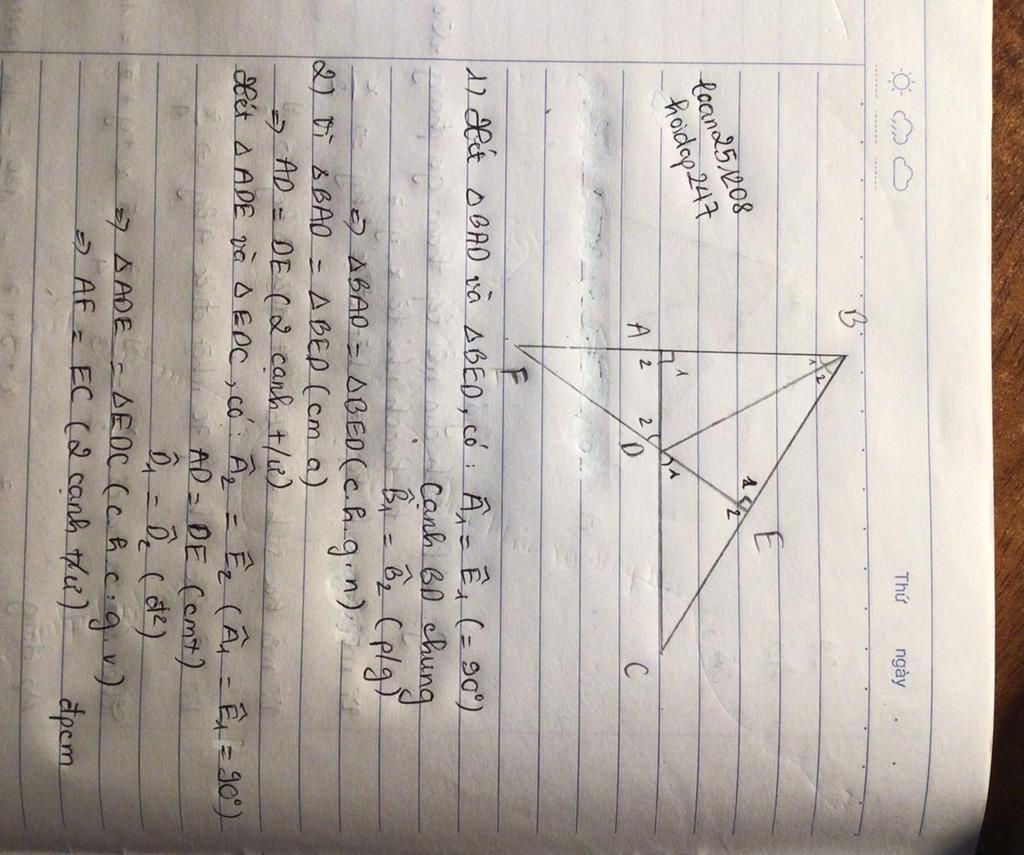 Thứ ngày
loan25/208
hoidap247
B
1 2
1 2
E
A
1
2
2
D
1
C
F
1) Xét ΔBAD và ΔBED, có: Â1 = Ê1 (= 90°)
cạnh BD chung
B̂1 = B̂2 (p/g)
=> ΔBAD = ΔBED (c.h.g.n)
2) Vì ΔBAD = ΔBED (cm a)
=> AD = DE (2 cạnh t/ư)
Xét ΔADE và ΔEDC, có: Â2 = Ê2 (Â1 = Ê1 = 90°)
AD = DE (cmt)
D̂1 = D̂2 (đ²)
=> ΔADE = ΔEDC
=> AF = EC (2 cạnh t/ư) đpcm